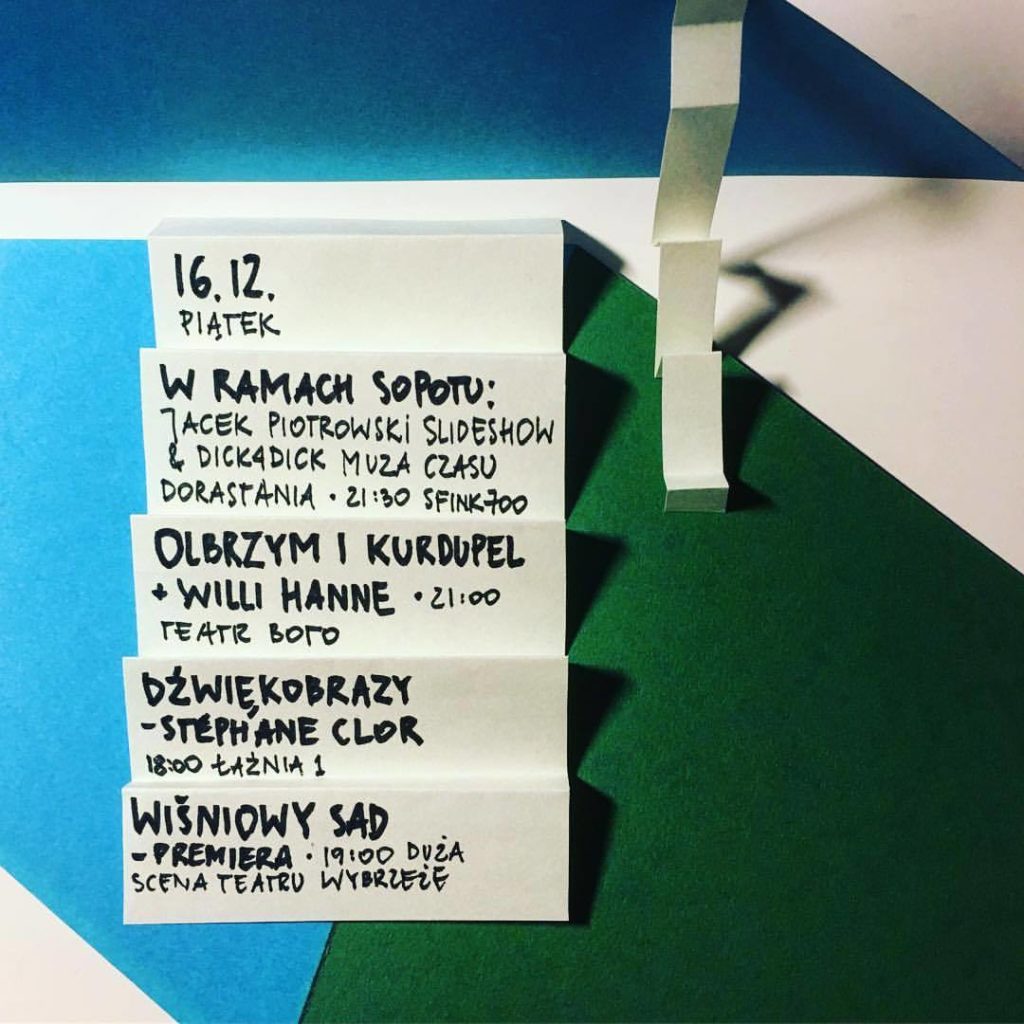 16.12.
PIĄTEK
W RAMACH SOPOTU:
JACEK PIOTROWSKI SLIDESHOW
& DICK4DICK MUZA CZASU
DORASTANIA • 21:30 SFINK700
OLBRZYM I KURDUPEL
+ WILLI HANNE • 21:00
TEATR BOTO
DŹWIĘKOBRAZY
- STÉPHANE CLOR
18:00 ŁAŹNIA 1
WIŚNIOWY SAD
- PREMIERA • 19:00 DUŻA
SCENA TEATRU WYBRZEŻE